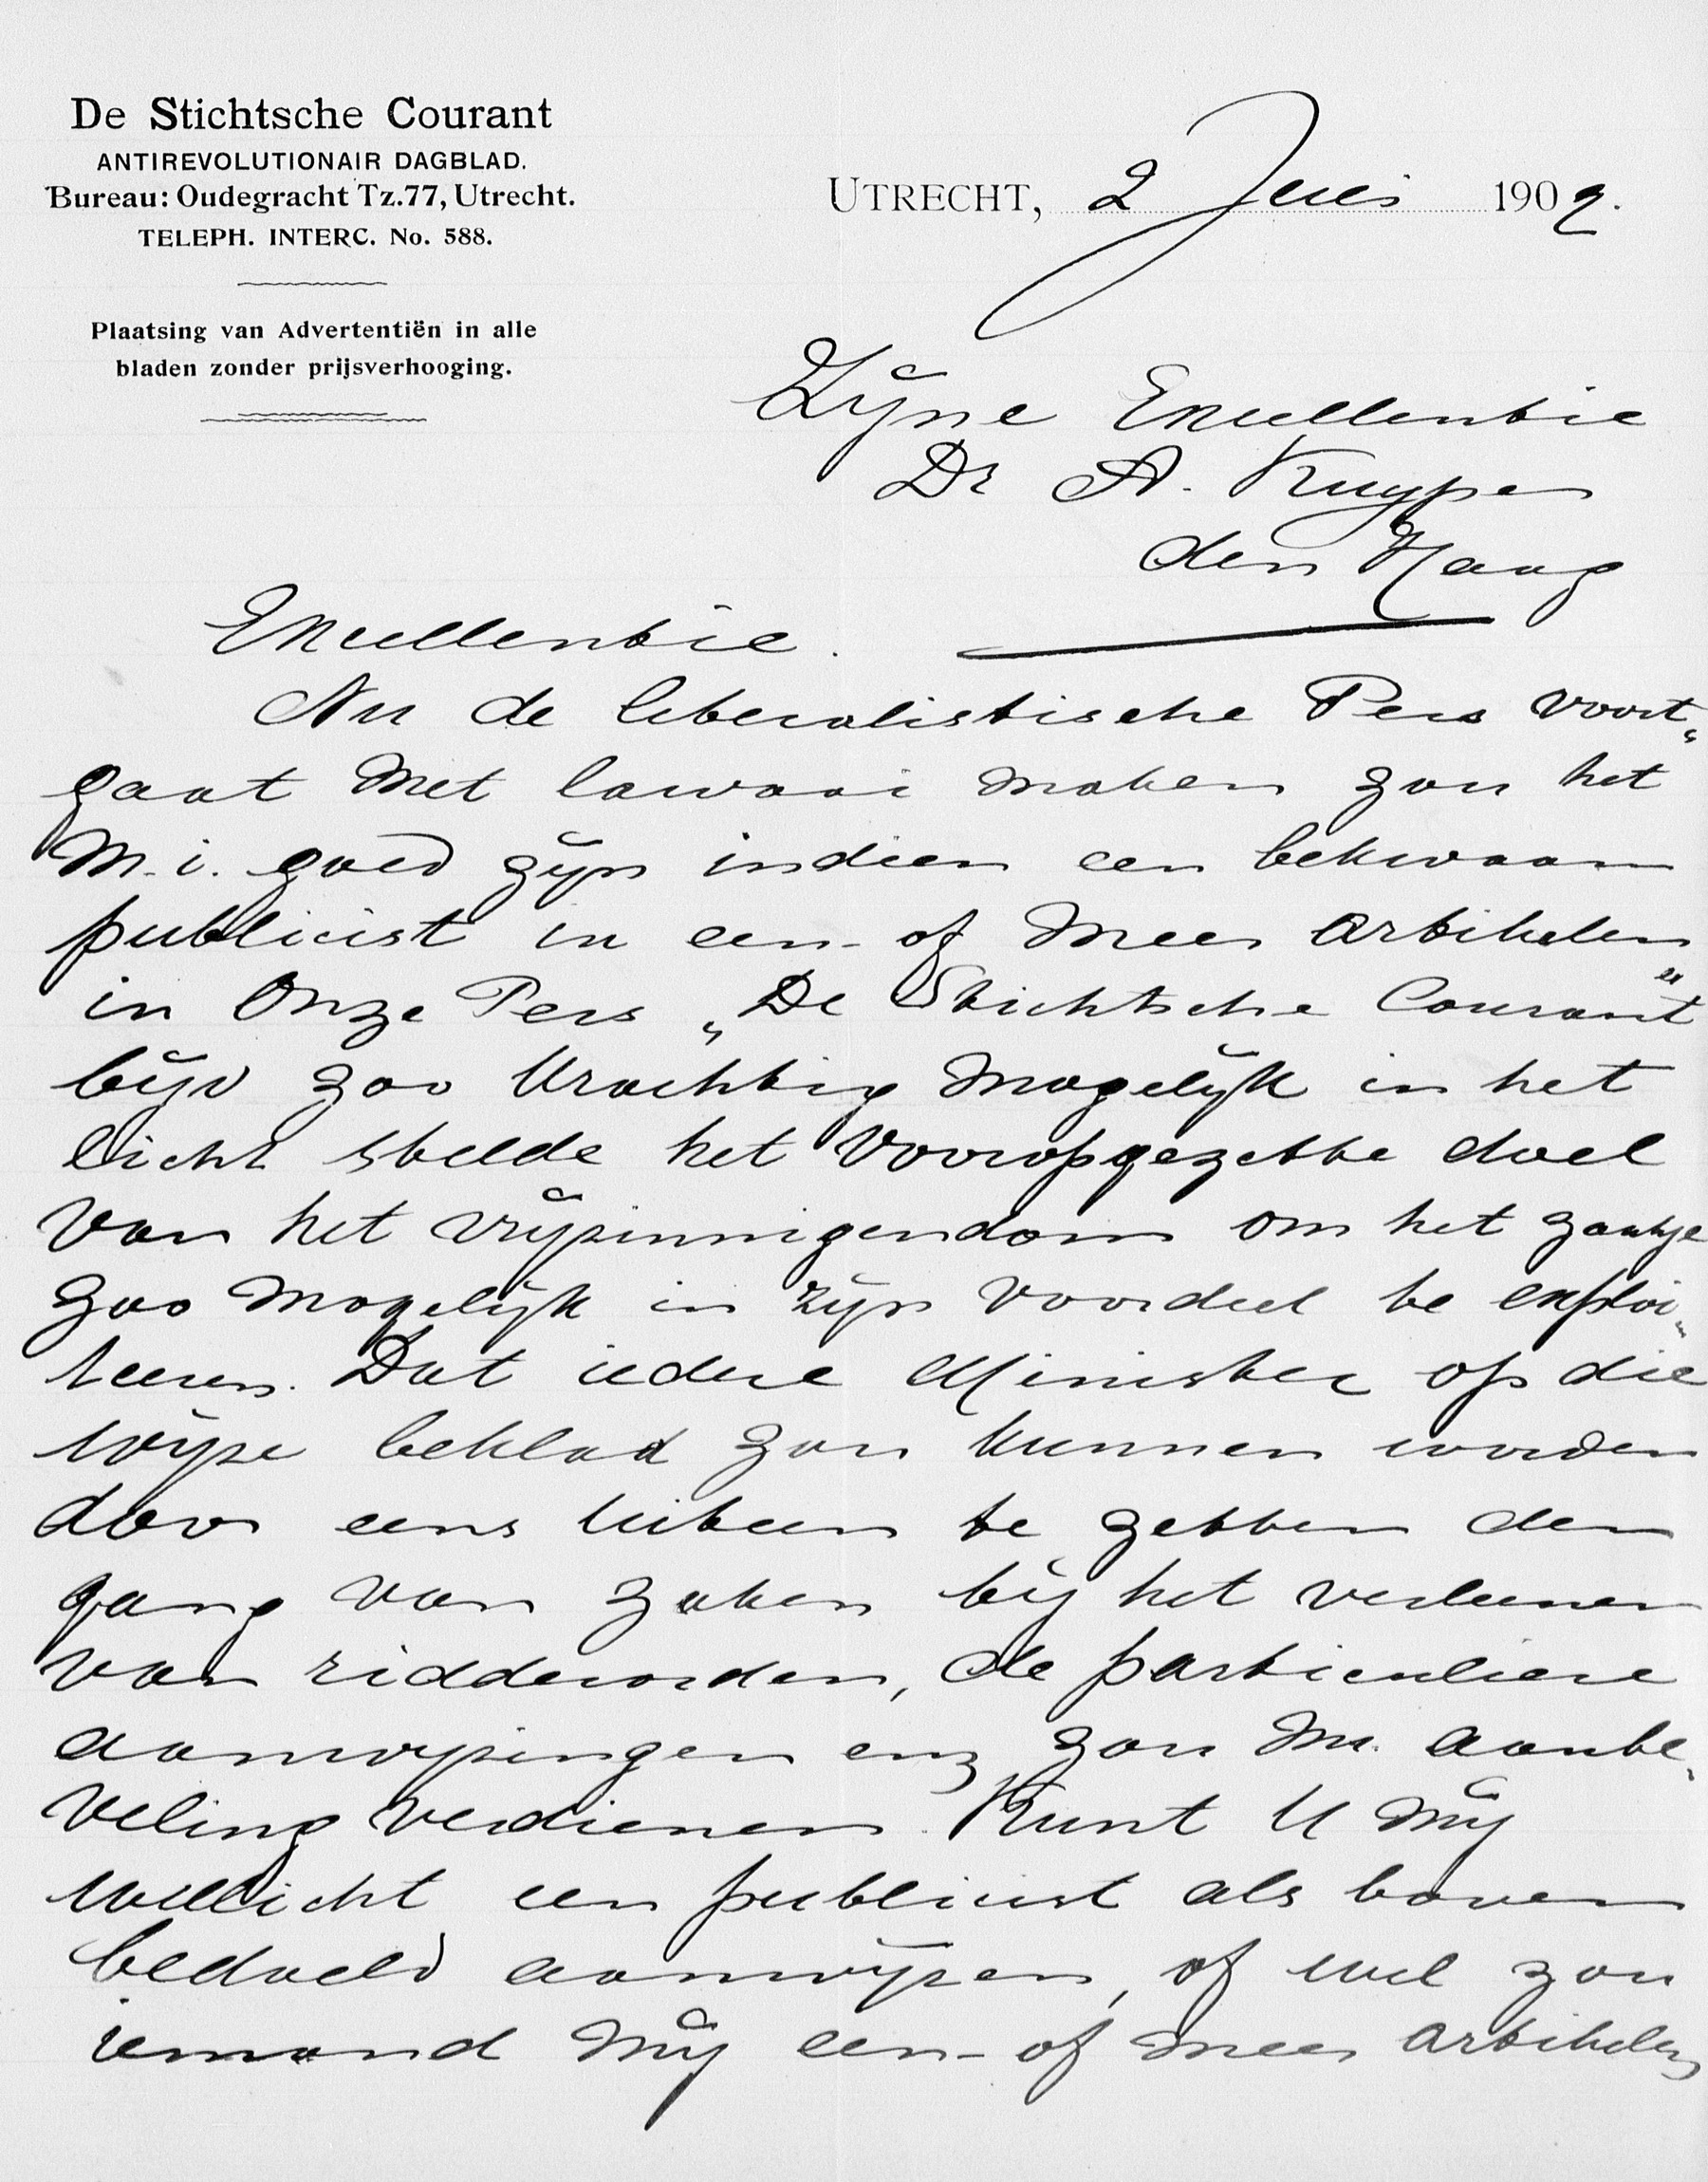 De Stichtsche Courant
ANTIREVOLUTIONAIR DAGBLAD.
Bureau: Oudegracht Tz.77, Utrecht.
TELEPH. INTERC. No. 588.
Plaatsing van Advertentiën in alle
bladen zonder prijsverhooging.
UTRECHT, 2 Juli 1909.
Zijne Excellentie
Dr A. Kuyper
den Haag
Excellentie.
Nu de liberalistische Pers voort„
gaat met lawaai maken zou het
m.i. goed zijn indien een bekwaam
publicist in een- of meer artikelen
in onze Pers „De Stichtsche Courant"
bijv zoo krachtig mogelijk in het
licht stelde het vooropgezette doel
van het vrijzinnigendom om het zaakje
zoo mogelijk in zijn voordeel te exploi„
teeren. Dat iedere Minister op die
wijze beklad zou kunnen worden
door eens uiteen te zetten den
gang van zaken bij het verleenen
van ridderorden, de particuliere
aanwijzingen enz zou m. aanbe„
veling verdienen. Kunt U mij
wellicht een publicist als boven
bedoeld aanwijzen, of wel zou
iemand mij een- of meer artikelen